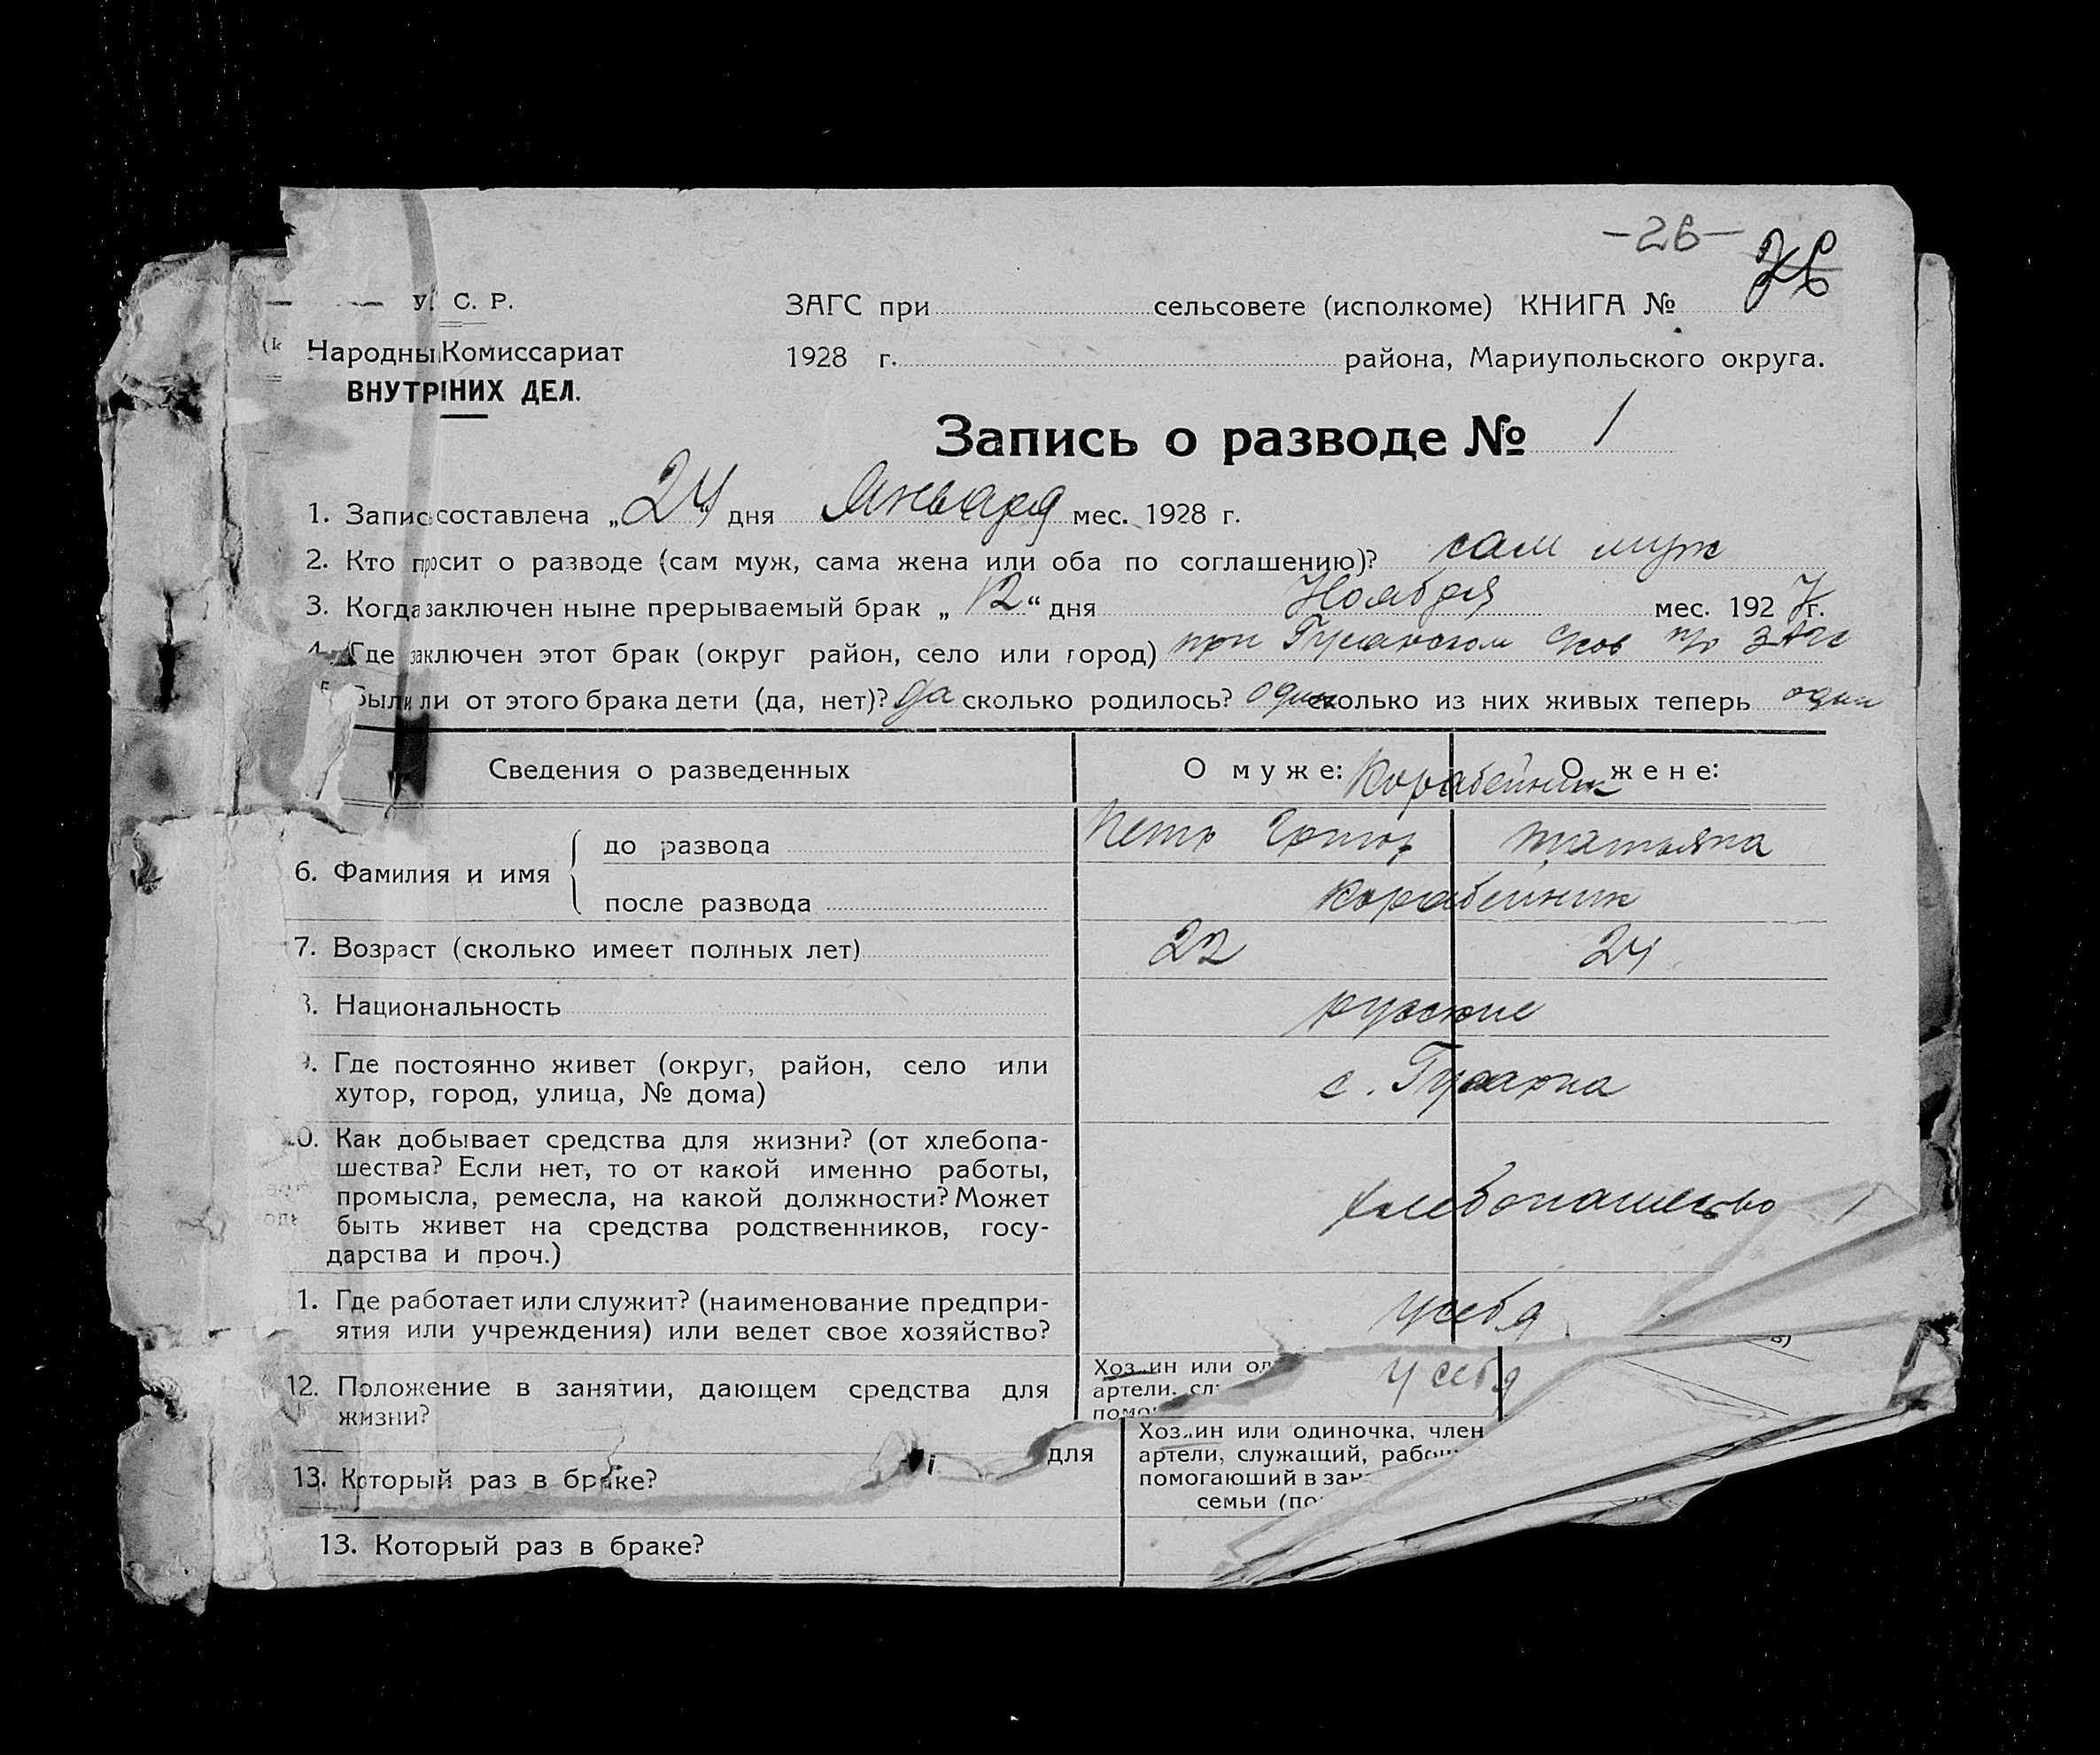 -26-
26
У. С. Р.
ЗАГС при сельсовете (исполкоме) КНИГА №
Народны Комиссариат
1928 г. района, Мариупольского округа.
ВНУТРІНИХ ДЕЛ.
Запись о разводе № 1
1. Запис составлена „24“ дня Января мес. 1928 г.
2. Кто просит о разводе (сам муж, сама жена или оба по соглашению)? сам муж
3. Когда заключен ныне прерываемый брак „12“ дня Ноября мес. 1927 г.
4. Где заключен этот брак (округ район, село или город) при
5. Были ли от этого брака дети (да, нет)? да сколько родилось? один сколько из них живых теперь один
Сведения о разведенных О муже: О жене:
Корабейник
6. Фамилия и имя до развода Татьяна
после развода Корабейник
7. Возраст (сколько имеет полных лет) 22 24
8. Национальность русские
9. Где постоянно живет (округ, район, село или
хутор, город, улица, № дома) с.
10. Как добывает средства для жизни? (от хлебопа-
шества? Если нет, то от какой именно работы,
промысла, ремесла, на какой должности? Может
быть живет на средства родственников, госу-
дарства и проч.)
хлебопашество
1. Где работает или служит? (наименование предпри-
ятия или учреждения) или ведет свое хозяйство?
у себя
12. Положение в занятии, дающем средства для
жизни?
Хоз..ин или од
артели, сл
помо
у себя
для
Хоз..ин или одиночка, член
артели, служащий, рабоч
помогающий в зан
семьи (по
13. Который раз в браке?
13. Который раз в браке?